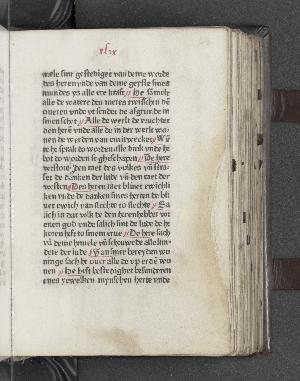 xlix
mele sint gestediget van deme worde
des heren vnde van deme geyste sines
mundes ys alle ere kraft He samelt
alle de watere des meres twisschen de
oueren vnde vt sendet de afgrunde in
sinen schet Alle de werlt de vruchtet
den heren vnde alle de in der werlt wo
nen de werden van em irwecket We
te he sprak do worden alle dink vnde he
bot do worden se gheschapen De here
vorstoret den rat des volkes vn straf
fet de danken der lude vn den rat der
vorsten Des heren raet bliuet ewichli
ken vnde de danken sines herten de bli
uet ewich van slechte to slechte Sa
lich is dat volk de den heren hebbet vor
enen god vnde salich sint de lude de he
koren heft to sinem erue De here sach
van deme hemele vn schouwede alle kin
dere der lude van siner bereyden wo
ninge sach he ouer alle de vp erden wo
nen He heft besundergen
enes yewelken mynschen herte vnde